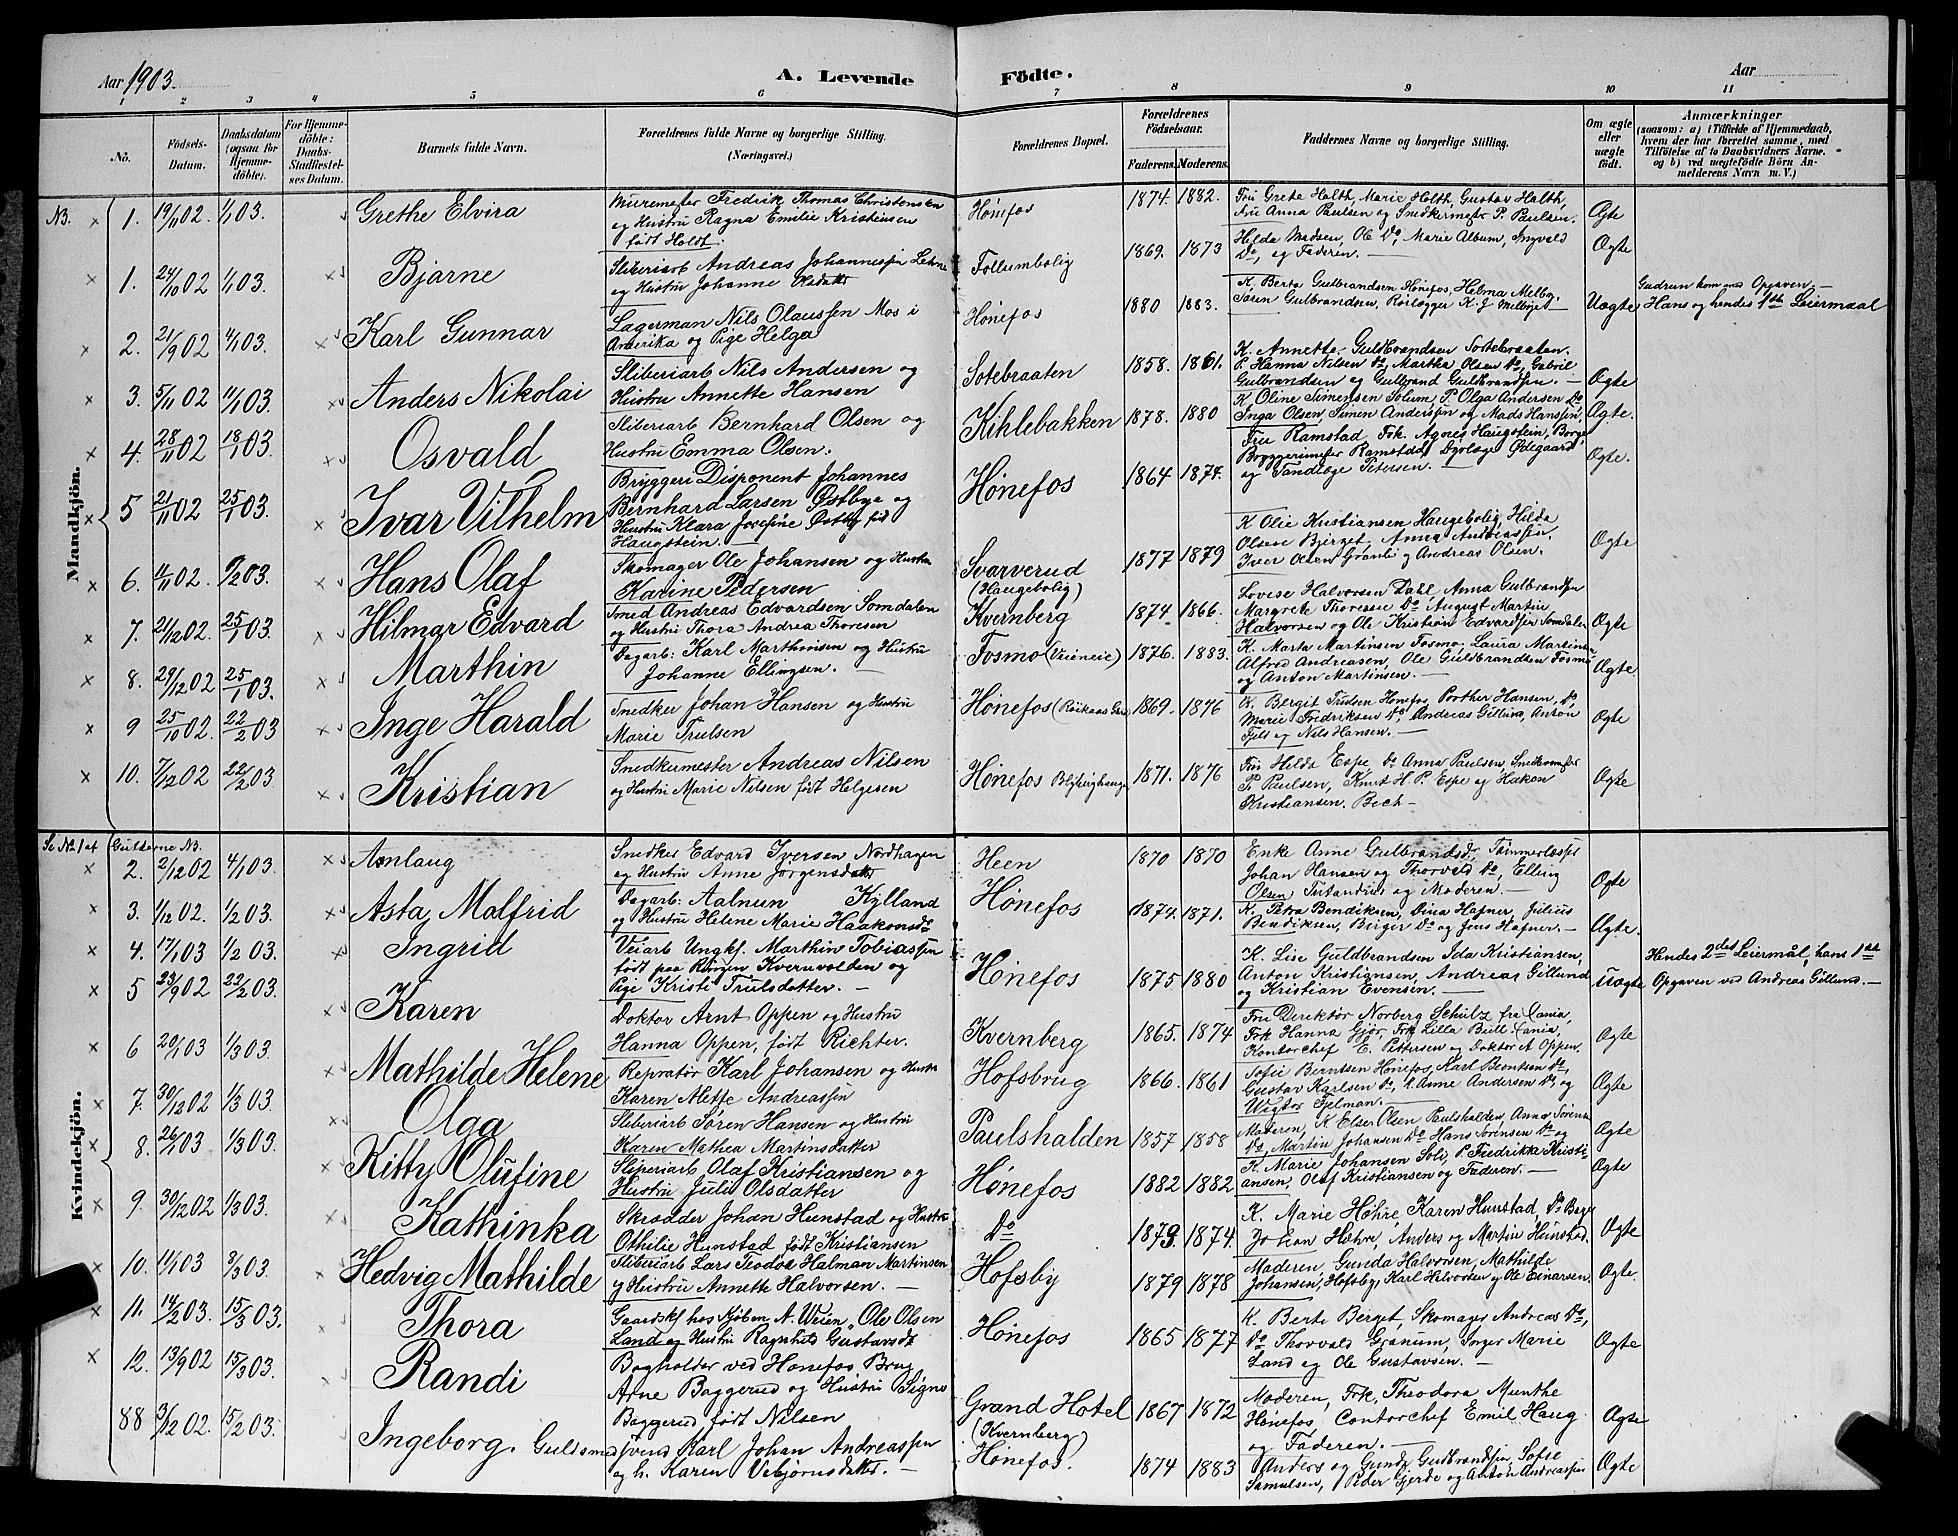 Aar 1903.
A. Levende Födte.
Aar
1 2 3 4 5 6 7 8 9 10 11
No.
Födsels-Datum.
Daabsdatum (ogsaa for Hjemme-döbte).
For Hjemme-döbte: Daabs-Stadfæstel-ses Datum.
Barnets fulde Navn.
Forældrenes fulde Navne og borgerlige Stilling. (Næringsvei.)
Forældrenes Bopæl.
Forældrenes Födselsaar.
Faderens. Moderens.
Faddernes Navne og borgerlige Stilling.
Om ægte eller uægte födt.
Anmærkninger
(saasom: a) i Tilfælde af Hjemmedaab, hvem der har forrettet samme, med Tilföielse af to Daabsvidners Navne, og b) ved uægtefödte Börn An-melderens Navn m. V.)
Mandkjön.
NB. × 1. 19/11 02. 1/1 03. Grethe Elvira
Muremester Fredrik Thomas Christensen
og Hustru Ragna Emilie Kristensen
født Holdt.
Hønefos 1874. 1882.
Fru Grete Holth, Marie Holth, Gustav Holth,
Fru Anna Paulsen og Snedkermester P. Paulsen.
Ægte
× 1. 24/10 02 1/1 03. Bjarne
Sliberiarb Andreas Johannessen Lehne
og Hustru Johanne
Follumbolig 1869. 1873
Hilda Madsen, Ole Do, Marie Album, Ingvald
Do, og Faderen. —
Ægte
× 2. 21/9 02 4/1 03. Karl Gunnar
Lagerman Nils Olaussen Mos i
Amerika og Pige Helga
Hønefos 1880 1883.
K. Berta Gulbrandsen Hønefos, Helma Melby,
Søren Gulbrandsen, Rørlægger K. J. Melby —
Uægte
Gudrun kom med Opgaven. —
Hans og hendes 1ste Leiermaal
× 3. 5/11 02 11/1 03. Anders Nikolai
Sliberiarb Nils Andersen og
Hustru Annette Hansen
Sotebraaten 1858. 1861.
K. Annette Guldbrandsen Sotebraaten.
P. Hanna Nilsen Do, Martha Olsen Do, Gabriel
Gulbrandsen og Gulbrand Guldbrandsen. —
Ægte
× 4. 28/11 02 18/1 03. Osvald
Sliberiarb Bernhard Olsen og
Hustru Emma Olsen.
Kihlebakken 1878. 1880
K. Oline Simensen Solum, P. Olga Andersen Do
Inga Olsen, Simen Andersen og Mads Hansen,
Ægte.
× 5 21/11 02 25/1 03. Ivar Vilhelm
Bryggeri Disponent Johannes
Bernhard Larsen Østbye og
Hustru Klara Josefine Østby fød
Haugstein. —
Hønefos 1864 1874.
Fru Ramstad, Frk. Agnes Haugstein, Borge
Bryggerimester Ramstad, Dyrlæge Ødegaard
og Tandlæge Petersen. —
Ægte.
× 6. 4/11 02. 03. Hans Olaf
Skomager Ole Johansen og Hustru
Karine Pedersen
Svarverud (Haugebolig) 1877 1879
K Olie Kristiansen Haugebolig, Hilda
Olsen Bjerget, Anna Andreassen,
Iver Olsen Grønli og Andreas Olsen.
Ægte
× 7. 21/12 02. 25/1 03. Hilmar Edvard
Smed Andreas Edvardsen Somdalen
og Hustru Thora Andrea Thoresen
Kvernberg 1874 1866.
Lovise Halvorsen Dahl, Anna Gulbrandsen
Margrete Thoresen Do August Martin
Halvorsen og Ole Kristian Edvardsen Somdalen
Ægte
× 8. 29/12 02 25/1 03. Marthin
Dagarb: Karl Marthinsen og Hustru
Johanne Ellingsen. —
Fosmo 1876. 1883.
K. Marta Martinsen Fosmo, Laura Martinsen
Alfred Andreasen, Ole Guldbrandsen Fosmo
og Anton Martinsen. —
Ægte
× 9 25/10 02. 22/2 03 Inge Harald
Snedker Johan Hansen og Hustru
Marie Trulsen
Hønefos 1869. 1876
K. Bergit Trulsen Hønefos, Porther Hansen, Do
Marie Fredriksen Do, Andreas Gillund, Anton
og Nils Hansen. —
Ægte
× 10. 7/12 02 22/2 03. Kristian
Snedkermester Andreas Nilsen
og Hustru Marie Nilsen født Helgesen
Hønefos 1871. 1876
Fru Hilda Espe Do Anna Paulsen Snedkermester
P. Paulsen, Knut H. P. Espe og Hakon
Kristiansen. Bech —
Ægte
Kvindekjön.
Se No 1 af Gutterne NB.
× 2. 2/12 02 4/1 03. Aslaug
Snedker Edvard Iversen Nordhagen
og Hustru Anne Jørgensdatter
Heen 1870 1870
Enke Anne Gulbrandsd, Tømmerlæsser
Johan Hansen og Thorvald Do, Elling
Olsen, og Moderen. —
Ægte
× 3. 1/12 02. 1/2 03. Asta Malfrid
Dagarb: Aalnun Kylland
og Hustru Helene Marie Haakonsd.
Hønefos 1874. 1871.
K. Petra Bendiksen, Dina Hafner, Julius
Bendiksen, Birger Do og Jens Hafner. —
Ægte.
× 4. 17/1 03 1/2 03. Ingrid
Veiarb Ungkf. Marthin Tobiassen
født paa Ringen Kvernvolden og
Pige Kristi Trulsdatter. —
Hønefos 1875 1880
K. Lise Guldbrandsen Ida Kristiansen,
Anton Kristiansen, Andreas Gillund
og Kristian Evensen. —
Uægte
Hendes 2det Leiermål, hans 1ste
Opgaven ved Andreas Gillund. —
× 5 23/9 02 22/2 03. Karen
Doktor Arnt Oppen og Hustru
Hanna Oppen, født Richter.
Kvernberg 1865. 1874
Fru Direktør Norberg Schulz fra Cania,
Frk Hanna Gjør, Frk Lilla Bull Cania,
Kontorchef E. Pettersen og Doktor A Oppen.
Ægte
× 6 20/1 03 1/3 03. Mathilde Helene
Reparatør Karl Johansen og Hustru
Karen Alette Andreassen
Hofsbrug 1866. 1861
Sofie Berntsen Hønefos, Karl Berntsen Do,
Gustav Karlsen Do, Anne Andersen Do, og
Wigtor Gjelman. —
Ægte
× 7. 30/12 02 1/3 03. Olga
Sliberiarb Søren Hansen og Hustru
Karen Mathea Martinsdatter
Paulshalden 1857 1858
Moderen, K. Elise Olsen Paulshalden, Anna Sørensen
Do, Martin Johansen Do Hans Sørensen Do og
Ægte
× 8. 26/1 03 1/3 03. Kitty Olufine
Sliperiarb Olaf Kristiansen og
Hustru Juli Olsdatter
Hønefos 1882 1882
K. Marie Johansen Soli, P. Fredrikka Kristi-
ansen, Olaf Kristiansen og Faderen. —
Ægte
× 9. 30/12 02 1/3 03. Kathinka
Skrædder Johan Hunstad og Hustru
Othilie Hunstad født Kristiansen
Do 1879. 1874.
K. Marie Höhre, Karen Hunstad, Do
Johan Hæhre, Anders og Martin Hunstad.
Ægte
10. 11/1 03 8/3 03. Hedvig Mathilde
Sliberiarb Lars Teodor Halman Martinsen
og Hustru Annette Halvorsen. —
Hofsby 1879 1878
Moderen, Gunda Halvorsen, Mathilde
Johansen, Hofsby, Karl Halvorsen og Ole Einarsen.
Ægte.
× 11. 14/2 03. 15/3 03. Thora
Gaardskf hos Kjøbm. A. Weien, Ole Olsen
Land og Hustru Ragnhild Gustavsdt
Hønefos 1865 1877
K. Berte Berget, Skomager Andreas Do,
Do Thorvald Granum, Inger Marie
Land og Ole Gustavsen. —
Ægte
× 12. 13/9 02 15/3 03. Randi
Bogholder ved Hønefos Brug
Arne Baggerud og Hustru Signe
Baggerud født Nilsen
Grand Hotel (Kvernberg) 1867 1872
Moderen, Frk. Theodora Munthe
Hønefos, Contorchef Emil Haug
og Faderen. —
Ægte
88 3/12 02. 15/2 03. Ingeborg.
Guldsmedsvend Karl Johan Andreassen
og h. Karen Vebjørnsdatter. —
Hønefos. 1874 1883
Anders og Gunda Gudbrandsen, Sofie
Samuelsen, Peder Gjerde og Anton Andreassen
Ægte